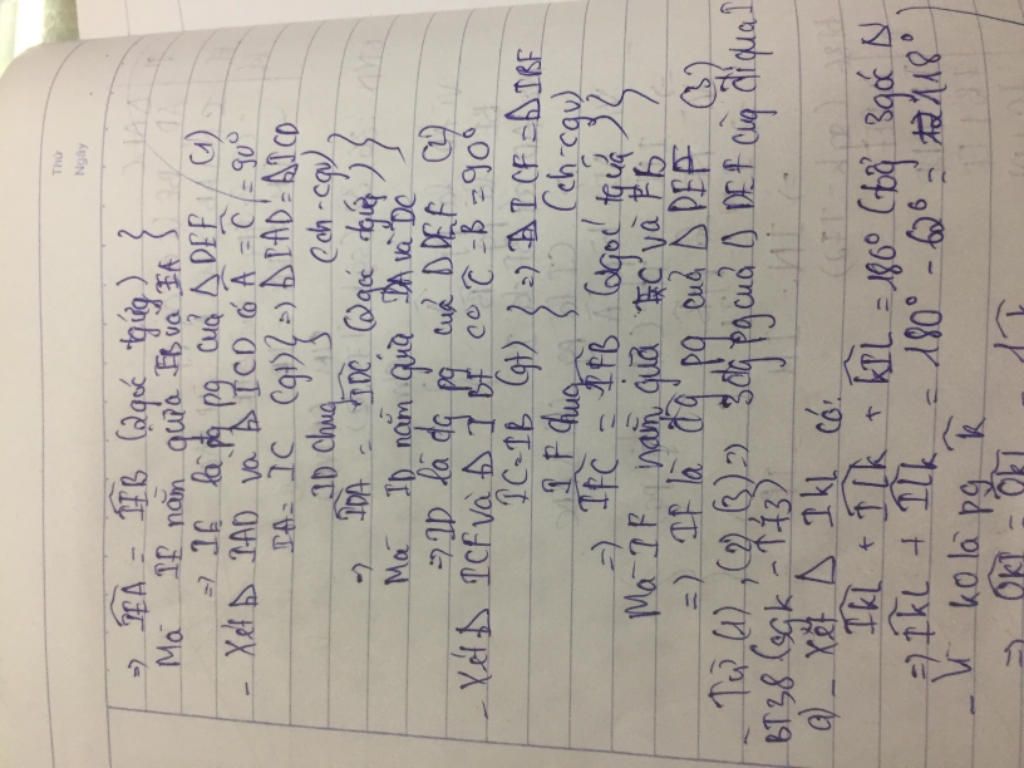 Thứ
Ngày
=> IEA = IEB (2góc tứng) }
Mà IE nằm giữa EB và EA }
=> IE là pg của Δ DEF (1)
- Xét Δ IAD và Δ ICD có A = C = 90°
IA = IC (gt) } => Δ IAD = Δ ICD
ID chung } (ch-cgv)
=> IDA = IDC (2góc tứng) }
Mà ID nằm giữa DA và DC }
=> ID là đg pg của Δ DEF (2)
- Xét Δ ICF và Δ IBF có C = B = 90°
IC = IB (gt) } => Δ ICF = Δ IBF
IF chung } (ch-cgv)
=> IFC = IFB (2góc tứng }
Mà IF nằm giữa FC và FB }
=> IF là đg pg của Δ DEF (3)
Từ (1), (2) (3) => 3 đg pg của Δ DEF cùng đi qua I
BT38 (sgk - T73)
a) - Xét Δ IKL có:
IKL + ILK + KIL = 180° (tổng 3góc Δ
=> IKL + ILK = 180° - 62° = 118°
- Vì KO là pg K
=> OKI = OKL